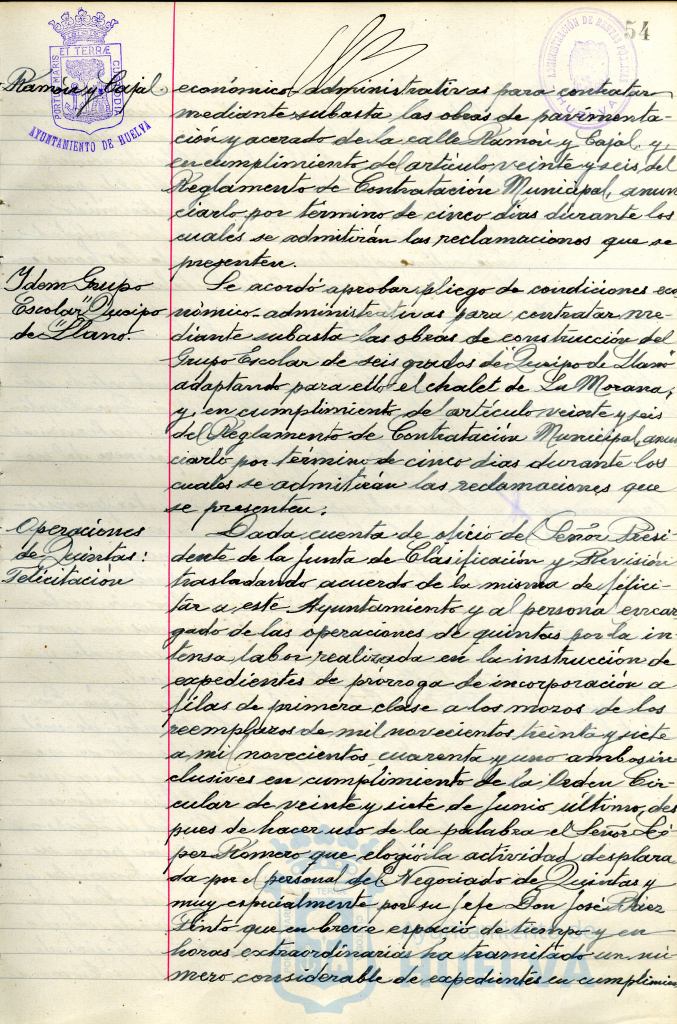 54
PORTUS MARIS ET TERRÆ CUSTODIA
AYUNTAMIENTO DE HUELVA
ADMINISTRACIÓN DE RENTAS PÚBLICAS
HUELVA
Ramón y Cajal
económico-administrativas para contratar
mediante subasta las obras de pavimenta-
ción y acerado de la calle Ramón y Cajal, y,
en cumplimiento del artículo veinte y seis del
Reglamento de Contratación Municipal, anun
ciarlo por término de cinco dias durante los
cuales se admitirán las reclamaciones que se
presenten.
Idem Grupo
Escolar "Queipo
de Llano."
Se acordó aprobar pliego de condiciones eco
nómico-administrativas para contratar me-
diante subasta las obras de construcción del
Grupo Escolar de seis grados de "Queipo de Llano"
adaptando para ello el chalet de La Morana,
y, en cumplimiento del artículo veinte y seis
del Reglamento de Contratación Municipal, anun
ciarlo por término de cinco dias durante los
cuales se admitirán las reclamaciones que
se presenten.
Operaciones
de Quintas:
Felicitación
Dada cuenta de oficio del Señor Presi-
dente de la Junta de Clasificación y Revisión
trasladando acuerdo de la misma de felici-
tar a este Ayuntamiento y al persona encar
gado de las operaciones de quintas por la in-
tensa labor realizada en la instrucción de
expedientes de prórroga de incorporación a
filas de primera clase a los mozos de los
reemplazos de mil novecientos treinta y siete
a mil novecientos cuarenta y uno ambos in
clusives en cumplimiento de la Orden Cir-
cular de veinte y siete de Junio último, des
pues de hacer uso de la palabra el Señor Ló
pez Romero que elogió la actividad desplara
da por el personal del Negociado de Quintas y
muy especialmente por su Jefe Don José
Pinto que en breve espacio de tiempo y en
horas extraordinarias ha tramitado un nú
mero considerable de expedientes en cumplimien
Ayuntamiento
HUELVA